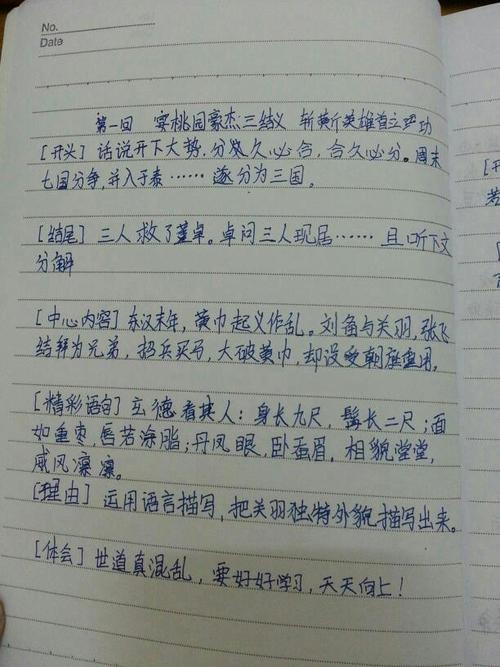 No.
Date
第一回 宴桃园豪杰三结义 斩黄巾英雄首立功
[开头] 话说天下大势.分久必合，合久必分。周末
七国分争,并入于秦……遂分为三国。
[结尾] 三人救了董卓。卓问三人现居……且听下文
分解
[中心内容] 东汉末年，黄巾起义作乱。刘备与关羽,张飞
结拜为兄弟，招兵买马，大破黄巾，却没受朝廷重用。
[精彩语句] 玄德看其人：身长九尺，髯长二尺；面
如重枣，唇若涂脂；丹凤眼，卧蚕眉，相貌堂堂，
威风凛凛。
[理由] 运用语言描写，把关羽独特外貌描写出来。
[体会] 世道真混乱，要好好学习，天天向上！